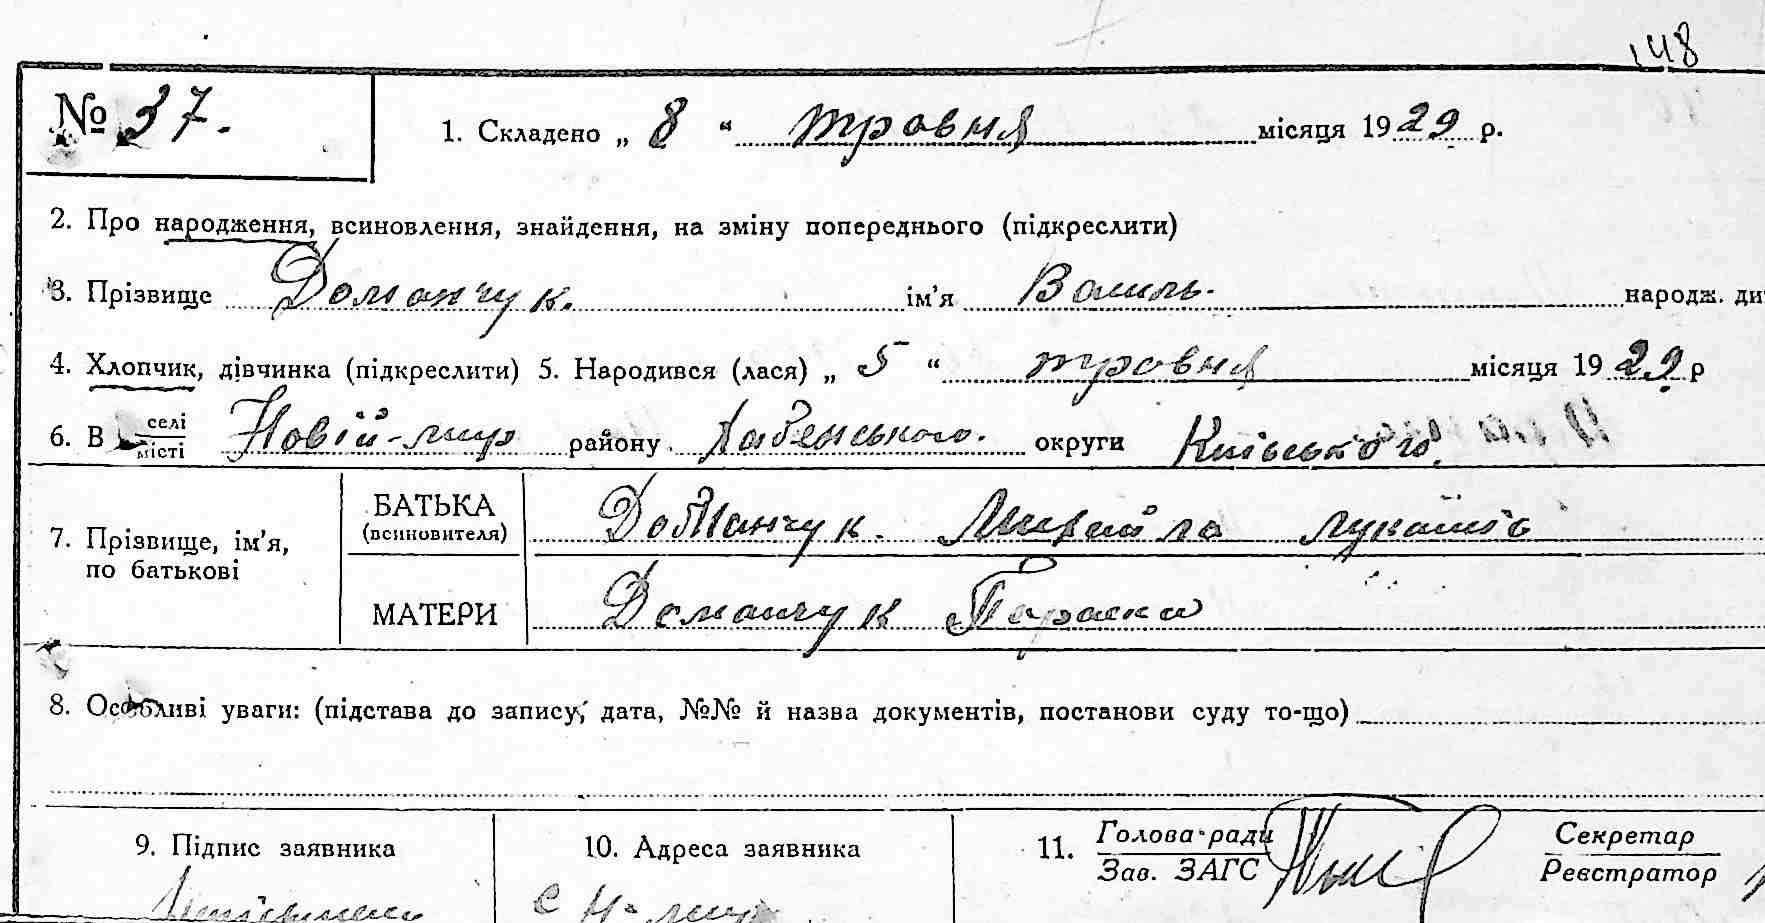 148
№ 37.
1. Складено „ 8 “ травня місяця 1929 р.
2. Про народження, всиновлення, знайдення, на зміну попереднього (підкреслити)
3. Прізвище Доманчук. ім’я Василь. народж. ди
4. Хлопчик, дівчинка (підкреслити) 5. Народився (лася) „ 5 “ травня місяця 1929 р
6. В селі місті Новій-мир району Хабенського. округи Київського.
7. Прізвище, ім’я, по батькові
БАТЬКА (всиновителя) Доманчук. Михайло Лукашів
МАТЕРИ Доманчук Параска
8. Особливі уваги: (підстава до запису, дата, №№ й назва документів, постанови суду то-що)
9. Підпис заявника
10. Адреса заявника
11. Голова ради Зав. ЗАГС
Секретар Реєстратор
с Н-мир